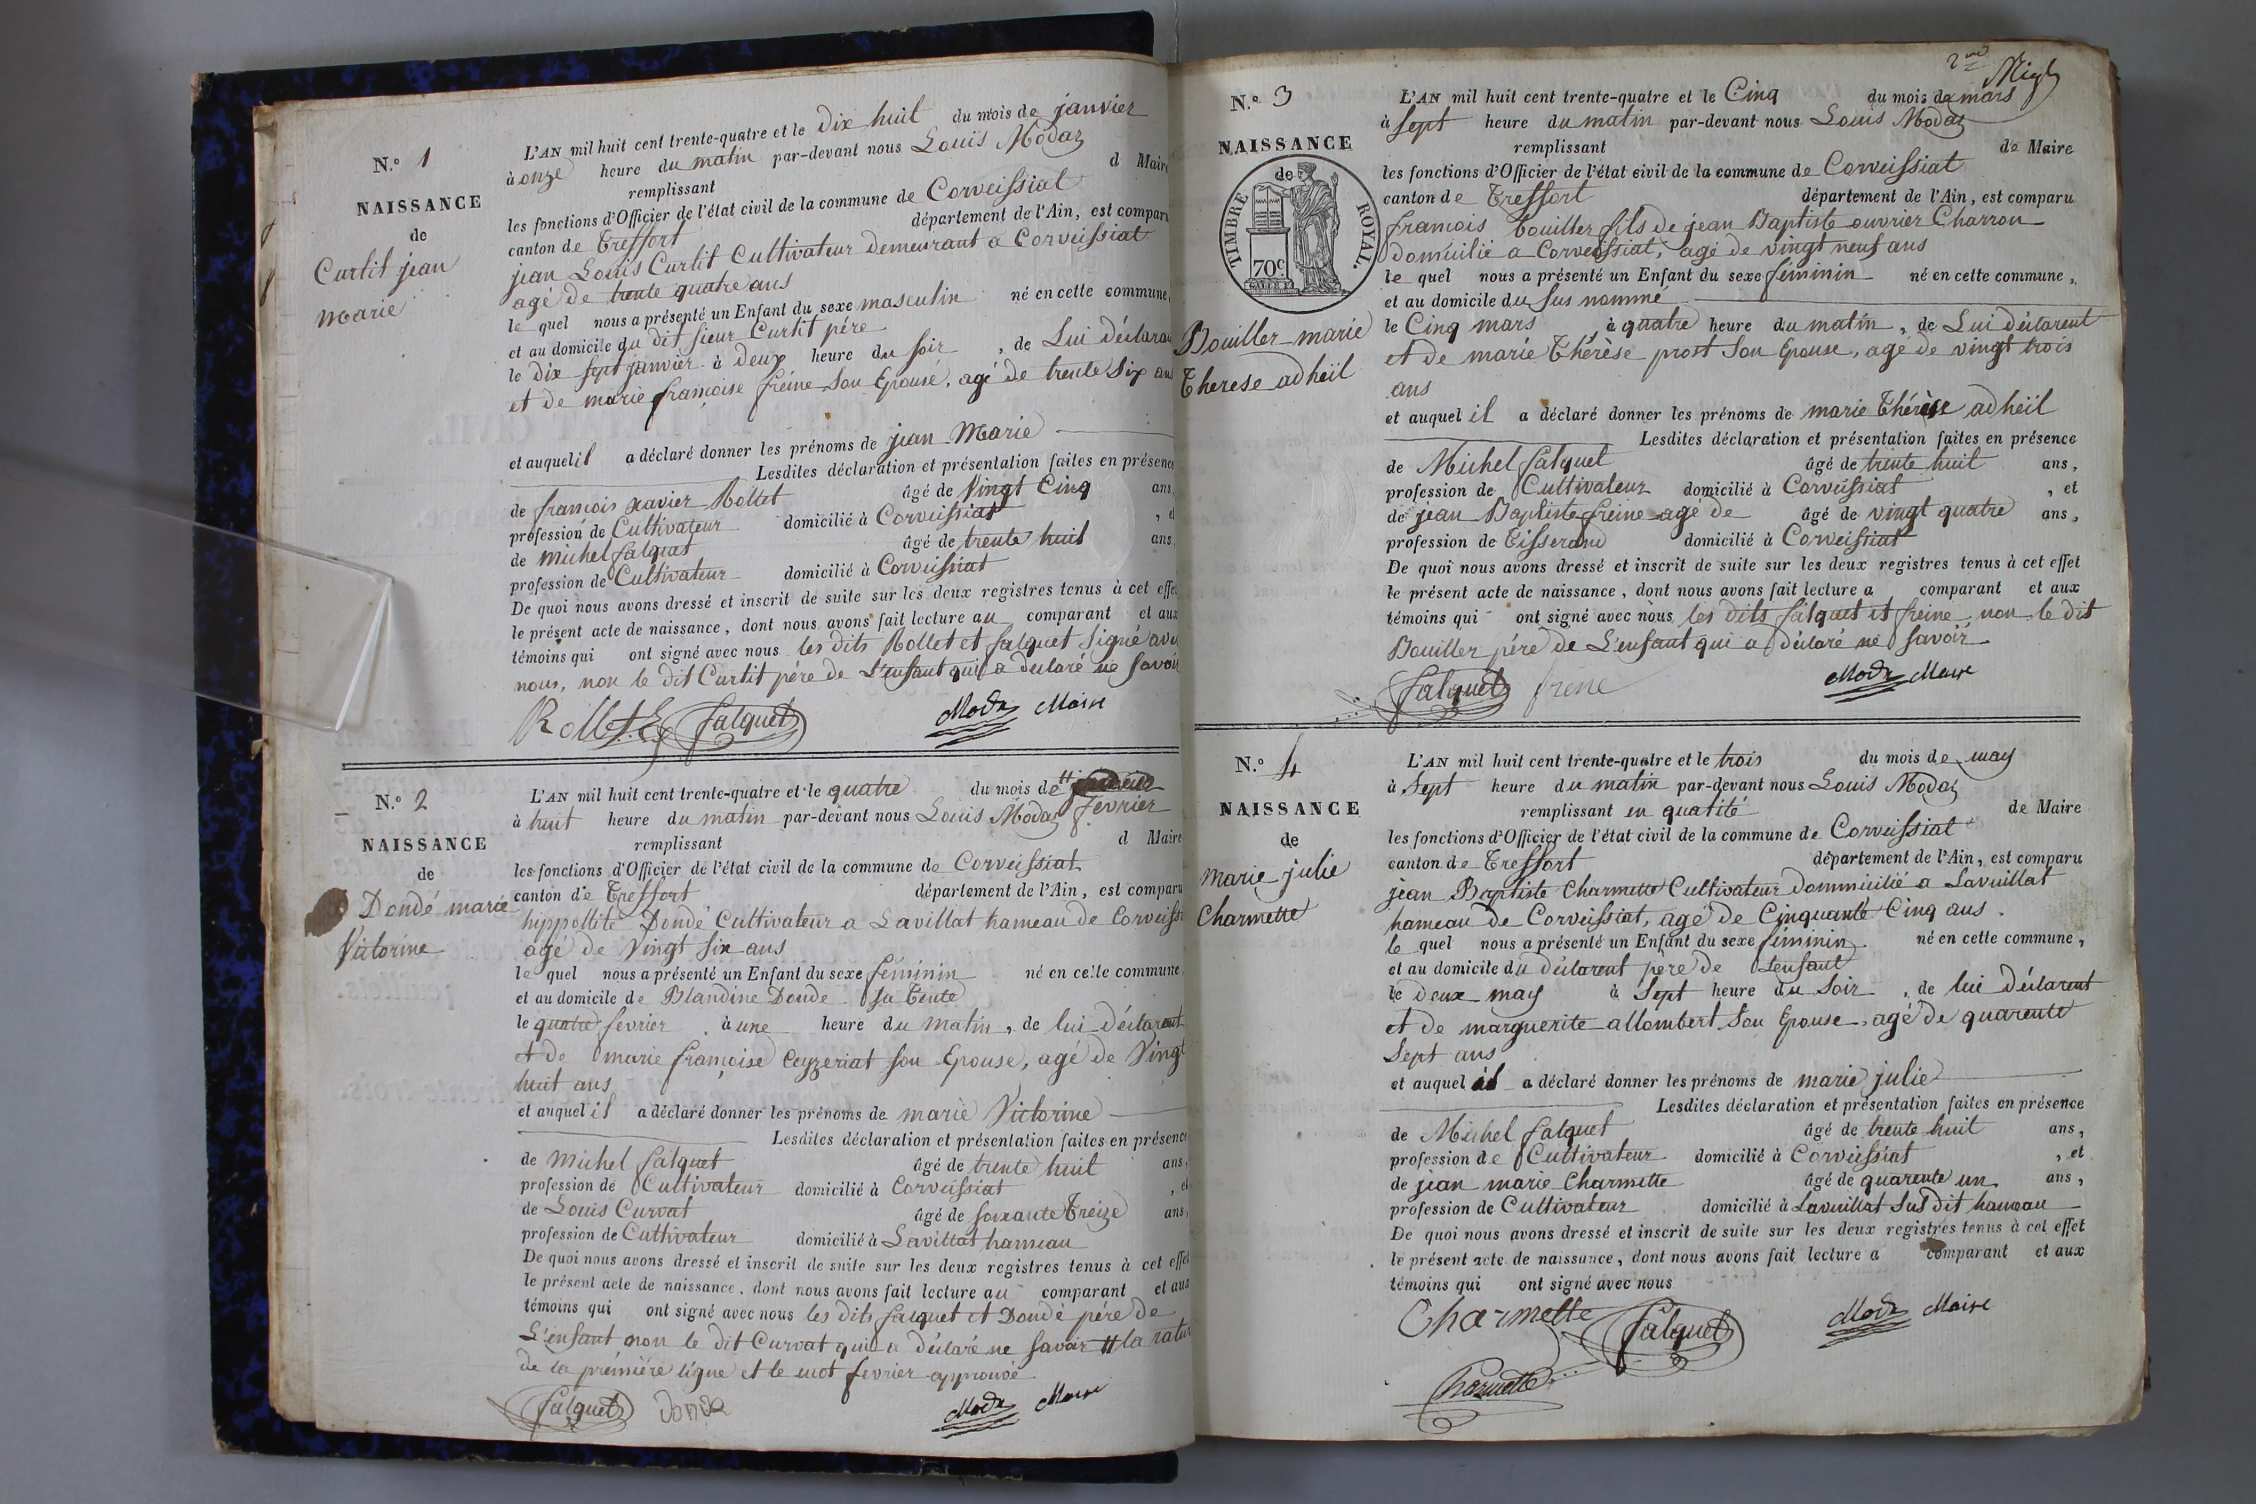 N.o 1
NAISSANCE
de
Curtit jean
marie
L'AN mil huit cent trente-quatre et le dix huit du mois de janvier
à onze heure du matin par-devant nous Louis Modaz
remplissant d Maire
les fonctions d'Officier de l'état civil de la commune de Corveissiat
canton de Treffort département de l'Ain, est comparu
jean Louis Curtit Cultivateur demeurant a Corveissiat
agé de trente quatre ans
le quel nous a présenté un Enfant du sexe masculin né en cette commune,
et au domicile du dit sieur Curtit pére
le dix sept janvier à deux heure du soir , de Lui déclarau
et de marie françoise freine son Epouse, agé de trente six ans
et auquel il a déclaré donner les prénoms de jean Marie
Lesdites déclaration et présentation faites en présence
de francois xavier Rollet âgé de Vingt Cinq ans,
profession de Cultivateur domicilié à Corveissiat , et
de michel falquet âgé de trente huit ans,
profession de Cultivateur domicilié à Corveissiat
De quoi nous avons dressé et inscrit de suite sur les deux registres tenus à cet effet
le présent acte de naissance, dont nous avons fait lecture au comparant et aux
témoins qui ont signé avec nous les dits Rollet et falquet signé avec
nous, non le dit Curtit pére de L'enfant qui a declaré ne savoir
Rollet falquet Modaz Maire
N.o 2
NAISSANCE
de
Dondé marie
Victorine
L'AN mil huit cent trente-quatre et le quatre du mois de # janvier
à huit heure du matin par-devant nous Louis Modaz fevrier
remplissant d Maire
les fonctions d'Officier de l'état civil de la commune de Corveissiat
canton de Treffort département de l'Ain, est comparu
hippollite Dondé Cultivateur a Lavillat hameau de Corveissi
agé de Vingt six ans
le quel nous a présenté un Enfant du sexe féminin né en cette commune
et au domicile de Blandine Donde sa tente
le quatre fevrier à une heure du matin, de lui déclarent
et de marie françoise Ceyzeriat son Epouse, agé de Vingt
huit ans
et auquel il a déclaré donner les prénoms de marie Victorine
Lesdites déclaration et présentation faites en présence
de michel falquet âgé de trente huit ans,
profession de Cultivateur domicilié à Corveissiat , et
de Louis Curvat âgé de soixante Treize ans,
profession de Cultivateur domicilié à Lavillat hameau
De quoi nous avons dressé et inscrit de suite sur les deux registres tenus à cet effet
le présent acte de naissance, dont nous avons fait lecture au comparant et aux
témoins qui ont signé avec nous les dits falquet et Dondé pére de
L'enfant non le dit Curvat qui a déclaré ne savoir # la ratur
de la prémiére ligne et le mot fevrier approuvé
falquet Donde Modaz Maire
2nd
N.o 3
NAISSANCE
de
TIMBRE ROYAL.
70c
Bouiller marie
Therese adheïl
L'AN mil huit cent trente-quatre et le Cinq du mois de mars
à sept heure du matin par-devant nous Louis Modaz
remplissant de Maire
les fonctions d'Officier de l'état civil de la commune de Corveissiat
canton de Treffort département de l'Ain, est comparu
francois bouiller fils de jean Baptiste ouvrier Charron
domicilié a Corveissiat, agé de vingt neuf ans
le quel nous a présenté un Enfant du sexe féminin né en cette commune,
et au domicile du sus nommé
le Cinq mars à quatre heure du matin, de Lui déclarent
et de marie Thérèse prost son Epouse, agé de vingt trois
ans
et auquel il a déclaré donner les prénoms de marie Thérèse adheïl
Lesdites déclaration et présentation faites en présence
de Michel falquet âgé de trente huit ans,
profession de Cultivateur domicilié à Corveissiat , et
de jean Baptiste freine agé de âgé de vingt quatre ans,
profession de Tisserand domicilié à Corveissiat
De quoi nous avons dressé et inscrit de suite sur les deux registres tenus à cet effet
le présent acte de naissance, dont nous avons fait lecture a comparant et aux
témoins qui ont signé avec nous les dits falquet et freine non le dit
Bouiller pére de L'enfant qui a déclaré ne savoir
falquet frene Modaz Maire
N.o 4
NAISSANCE
de
marie julie
Charmette
L'AN mil huit cent trente-quatre et le trois du mois de may
à sept heure du matin par-devant nous Louis Modaz
remplissant en qualité de Maire
les fonctions d'Officier de l'état civil de la commune de Corveissiat
canton de Treffort département de l'Ain, est comparu
jean Baptiste Charmette Cultivateur dommicilié a Lavuillat
hameau de Corveissiat, agé de Cinquante Cinq ans.
le quel nous a présenté un Enfant du sexe féminin né en cette commune,
et au domicile du déclarent pére de Lenfant
le deux may à sept heure du soir , de lui déclarent
et de marguerite allombert son Epouse, agé de quarente
sept ans
et auquel il a déclaré donner les prénoms de marie julie
Lesdites déclaration et présentation faites en présence
de Michel falquet âgé de trente huit ans,
profession de Cultivateur domicilié à Corveissiat , et
de jean marie Charmette âgé de quarente un ans,
profession de Cultivateur domicilié à Lavuillat sus dit hameau
De quoi nous avons dressé et inscrit de suite sur les deux registres tenus à cet effet
le présent acte de naissance, dont nous avons fait lecture a comparant et aux
témoins qui ont signé avec nous
Charmette falquet Modaz Maire
Charmette